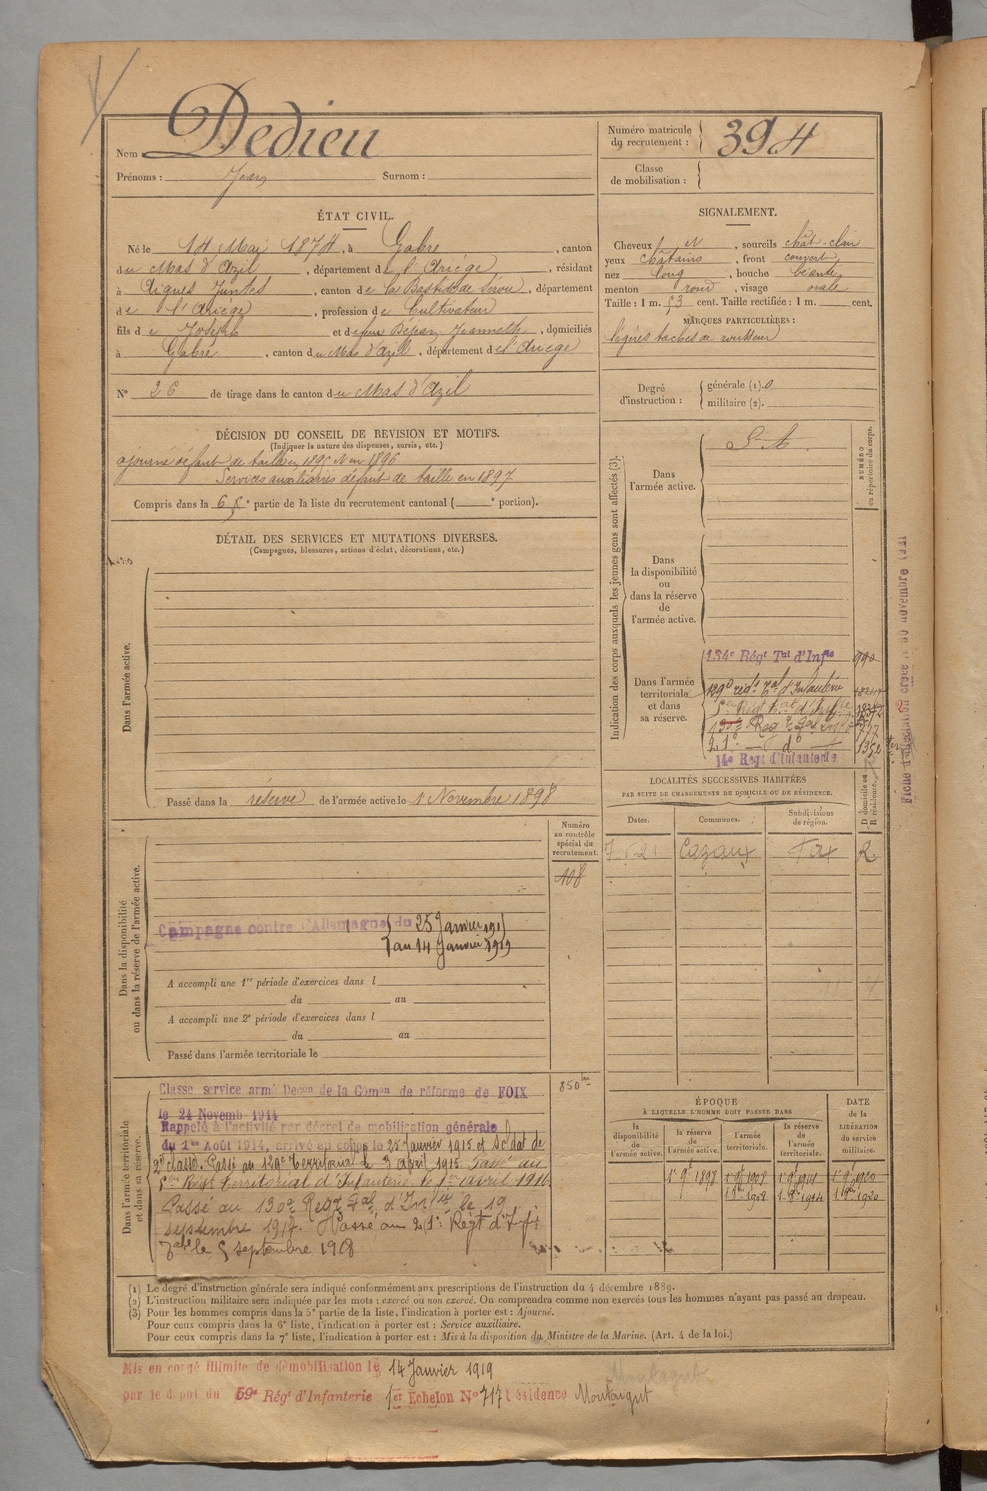 Nom Dedieu
Prénoms : Jean Surnom :
Numéro matricule du recrutement : 394
Classe de mobilisation :
ÉTAT CIVIL.
Né le 14 Mai 1874, à Gabre, canton
du Mas d'Azil, département de l'Ariège, résidant
à Aigues Juntes, canton de La Bastide de Sérou, département
de l'Ariège, profession de Cultivateur
fils de Joseph et de feue Jeannette, domiciliés
à Gabre, canton du Mas d'Azil, département de l'Ariège
N° 26 de tirage dans le canton du Mas d'Azil
SIGNALEMENT.
Cheveux et, sourcils chât. clair
yeux châtains, front couvert
nez long, bouche béante
menton rond, visage ovale
Taille : 1 m. 53 cent. Taille rectifiée : 1 m. cent.
MARQUES PARTICULIÈRES :
légères taches de rousseur
Degré d'instruction : générale (1). 0
militaire (2).
DÉCISION DU CONSEIL DE REVISION ET MOTIFS.
(Indiquer la nature des dispenses, sursis, etc.)
ajourné défaut de taille en 1895 et en 1896
Services auxiliaires défaut de taille en 1897
Compris dans la 6e partie de la liste du recrutement cantonal ( e portion).
DÉTAIL DES SERVICES ET MUTATIONS DIVERSES.
(Campagnes, blessures, actions d'éclat, décorations, etc.)
Dans l'armée active.
Passé dans la réserve de l'armée active le 1 Novembre 1898
Indication des corps auxquels les jeunes gens sont affectés (3).
NUMÉRO au répertoire du corps.
Dans l'armée active.
S. A.
Dans la disponibilité ou dans la réserve de l'armée active.
Dans l'armée territoriale et dans sa réserve.
134e Régt Tal d'Infie 990
129e régt Tal d'Infanterie
130e Régt Tal Infie
21e — do — 1352
14e Regt d'Infanterie
Fiche d'affectation créée le 30 novembre 1921
LOCALITÉS SUCCESSIVES HABITÉES
PAR SUITE DE CHANGEMENTS DE DOMICILE OU DE RÉSIDENCE.
D domicile ou R résidence.
Dates. Communes. Subdivisions de région.
Cazaux Foix R.
Dans la disponibilité ou dans la réserve de l'armée active.
Numéro au contrôle spécial du recrutement.
108
Campagne contre l'Allemagne du 25 Janvier 1915
au 14 Janvier 1919
A accompli une 1re période d'exercices dans l
du au
A accompli une 2e période d'exercices dans l
du au
Passé dans l'armée territoriale le
Dans l'armée territoriale et dans sa réserve.
Classe service armé Decon de la Comon de réforme de FOIX
le 24 Novemb 1914
Rappelé à l'activité par décret de mobilisation générale
du 1er Août 1914, arrivé au corps le 25 Janvier 1915 et Soldat de
2e classe. Passé au 129e Territorial le 3 avril 1915. Passé au
Régt territorial d'Infanterie, le 1er avril 1916
Passé au 130e Regt Tal d'Infie le 19
septembre 1917. Passé au 21e Régt d'Infie
Tale le 5 septembre 1918
850
ÉPOQUE
À LAQUELLE L'HOMME DOIT PASSER DANS
DATE de la LIBÉRATION du service militaire.
la disponibilité de l'armée active. la réserve de l'armée active. l'armée territoriale. la réserve de l'armée territoriale.
1er 9bre 1898 1er 9bre 1908 1er 9bre 1914 1er 9bre 1920
(1) Le degré d'instruction générale sera indiqué conformément aux prescriptions de l'instruction du 4 décembre 1889.
(2) L'instruction militaire sera indiquée par les mots : exercé ou non exercé. On comprendra comme non exercés tous les hommes n'ayant pas passé au drapeau.
(3) Pour les hommes compris dans la 5e partie de la liste, l'indication à porter est : Ajourné.
Pour ceux compris dans la 6e liste, l'indication à porter est : Service auxiliaire.
Pour ceux compris dans la 7e liste, l'indication à porter est : Mis à la disposition du Ministre de la Marine. (Art. 4 de la loi.)
Mis en congé illimité de démobilisation le 14 Janvier 1919
par le dépot du 59e Régt d'Infanterie 1er Echelon No 717 résidence Montaigut